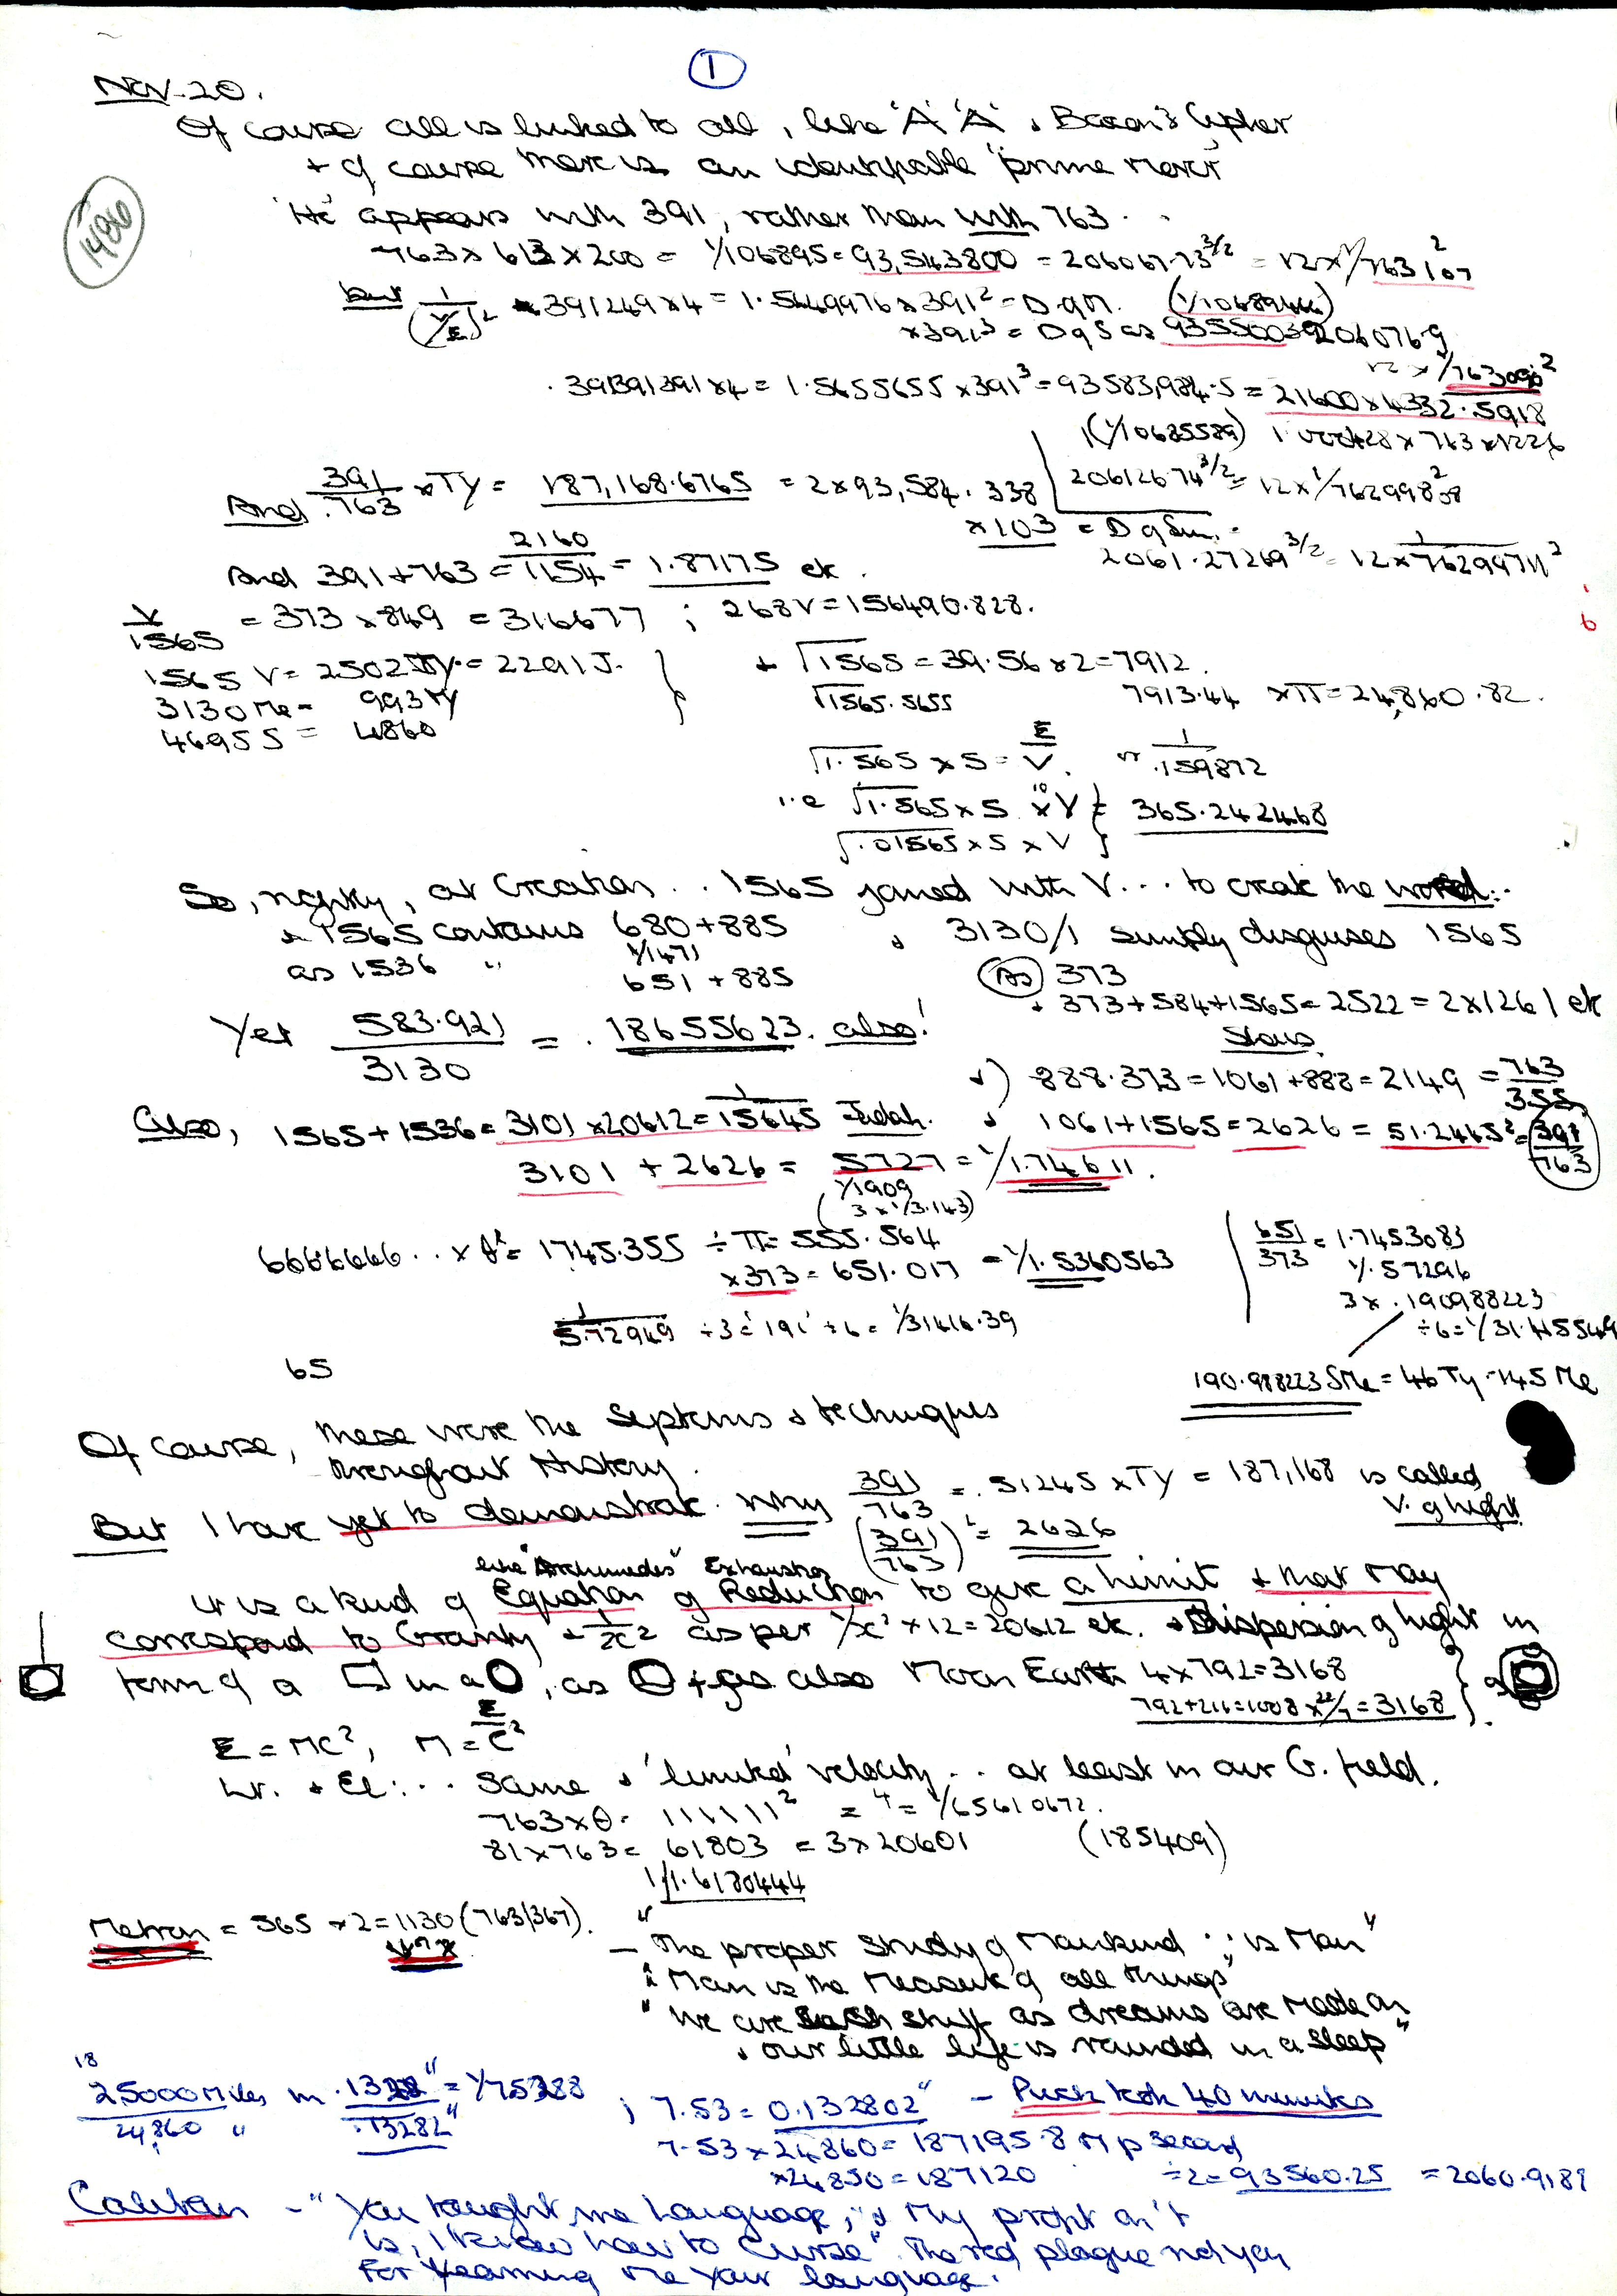 1
Nov. 20.
Of course all is linked to all, like 'A' 'A' & Bacon's Cypher
+ of course there is an identifiable "prime mover"
1486
'He' appears with 391, rather than with 763.
763 x 613 x 200 = 1/106895 = 93,543800 = 206067.73^3/2 = 12 x 1/763107^2
but 391249 x 4 = 1.5649976 x 391² = D of M.
x 391³ = D of S as 93550039 2060769
.391391391 x 4 = 1.5655655 x 391³ = 93583,984.5 = 21600 x 4332.5918
(1/10685589) x 763 x 1226
And 391/.763 x Ty = 187,168.6765 = 2 x 93,584.338
20612674^3/2 = 12 x 1/76299808²
x 103 = D of Sun.
And 391 + 763 = 2160/1154 = 1.87175 etc.
2061.27269^3/2 = 12 x 1/76299711²
V/1565 = 373 x 849 = 316677 ; 268V = 156490.828.
1565 V = 2502 Ty = 2291 J.
3130 Me = 993 Ty
4695 S = 4860
+ √1565 = 39.56 x 2 = 7912.
√1565.5655 7913.44 x π = 24,860.82.
√1.565 x 5 = E/V. or 1/.159872
i.e √1.565 x 5 x V } = 365.242468
√.01565 x 5 x V
So, rightly, at Creation .. 1565 joined with V ... to create the world:-
& 1565 contains 680 + 885
1/1471
as 1536 " 651 + 885
& 3130/1 simply disguises 1565
(As) 373
+ 373 + 584 + 1565 = 2522 = 2 x 1261 etc
Stars
Yet 583.921/3130 = .18655623. also!
+) 888.373 = 1061 + 888 = 2149 = 763/355
Also, 1565 + 1536 = 3101 x 20612 = 1/15645 Judah.
& 1061 + 1565 = 2626 = 51.2465² = 391/763
3101 + 2626 = 5727 = 1/1.74611.
1/1909
(3 x 1/3.143)
6666666.. x θ² = 1745.355 ÷ π = 555.564
x 373 = 651.017 = 1/1.5360563
651/373 = 1.7453083
1/.57296
3 x .190988223
÷ 6 = 1/31.4155549
1/5.72949 ÷ 3 = '191' ÷ 6 = 1/31416.39
65
190.988223 SMe = 46 Ty - 145 Me
Of course, these were the systems & techniques
throughout History.
But I have yet to demonstrate. Why 391/763 = .51245 x Ty = 187,168 is called
V. of light
(391/763)² = 2626
like "Archimedes" Exhaustion
it is a kind of Equation of Reduction to give a limit & that may
correspond to Gravity & 1/x² as per 1/x² x 12 = 20612 etc. & Dispersion of light in
terms of a □ in a O, as also Moon Earth 4 x 792 = 3168
792 + 216 = 1008 x 22/7 = 3168
E = MC², M = E/C²
Lt. & El: .. Same & 'limited' velocity .. at least in our G. field.
763 x θ = 1111111² = 1/65610672.
81 x 763 = 61803 = 3 x 20601 (185409)
1/1.6180444
Metron = 565 x 2 = 1130 (763/367).
— "The proper study of Mankind ; is Man"
"Man is the Measure of all things"
"We are such stuff as dreams are made on
& our little life is rounded in a sleep"
18
25000 Miles in .1328" = 1/75288
24,860 " .13282"
; 7.53 = 0.132802" - Puck took 40 minutes
7.53 x 24860 = 187195.8 M p second
x 24850 = 187120 ÷ 2 = 93560.25 = 2060.9189
Caliban - "You taught me language, & my profit on't
is, I know how to curse". The red plague rid you
For learning me your language.